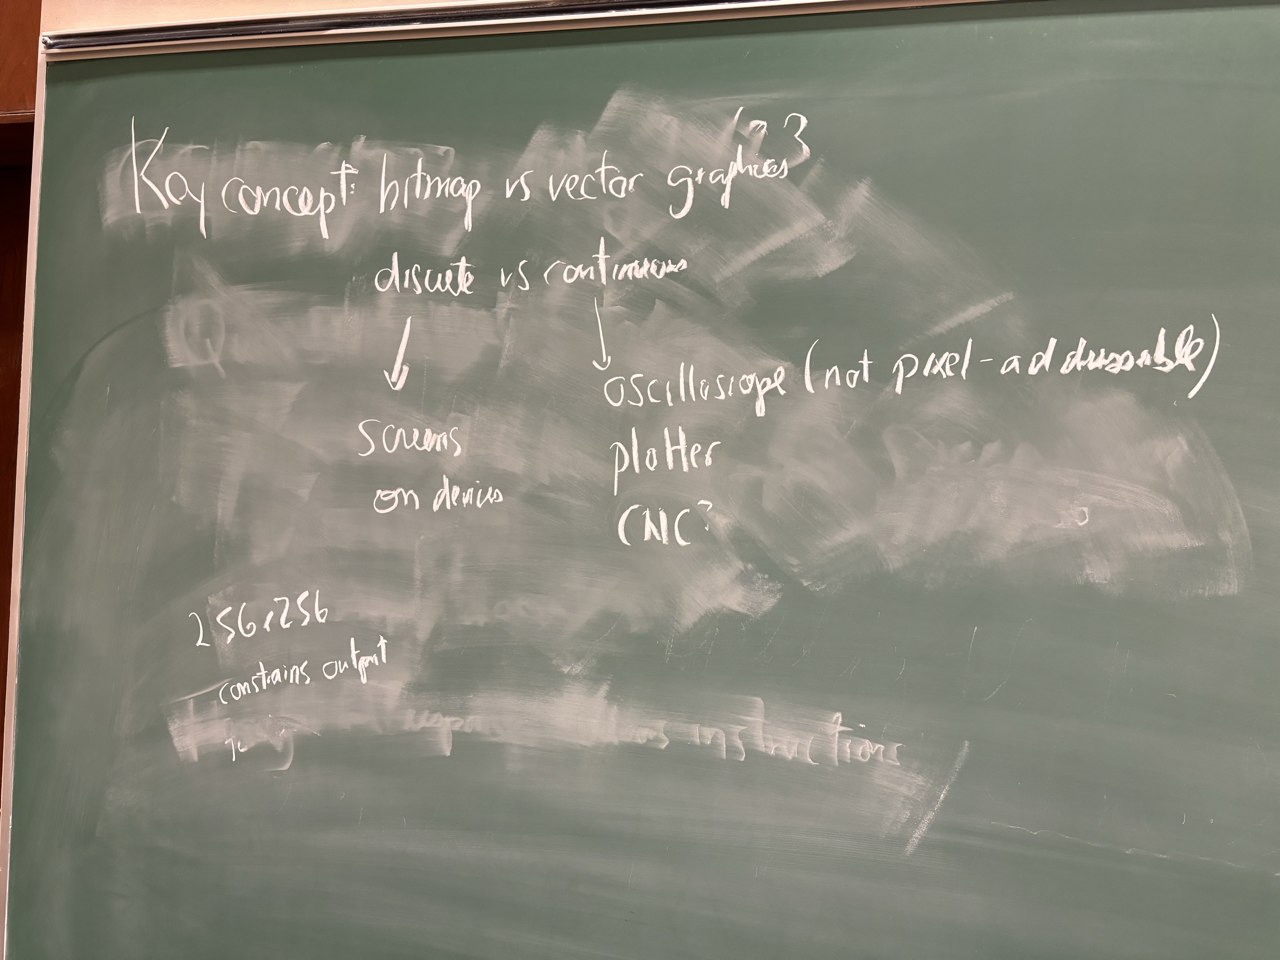 Key concept: bitmap vs vector graphics
discrete vs continuous
oscilloscope (not pixel-addressable)
screens
plotter
on devices
CNC?
256x256
constrains output
instructions